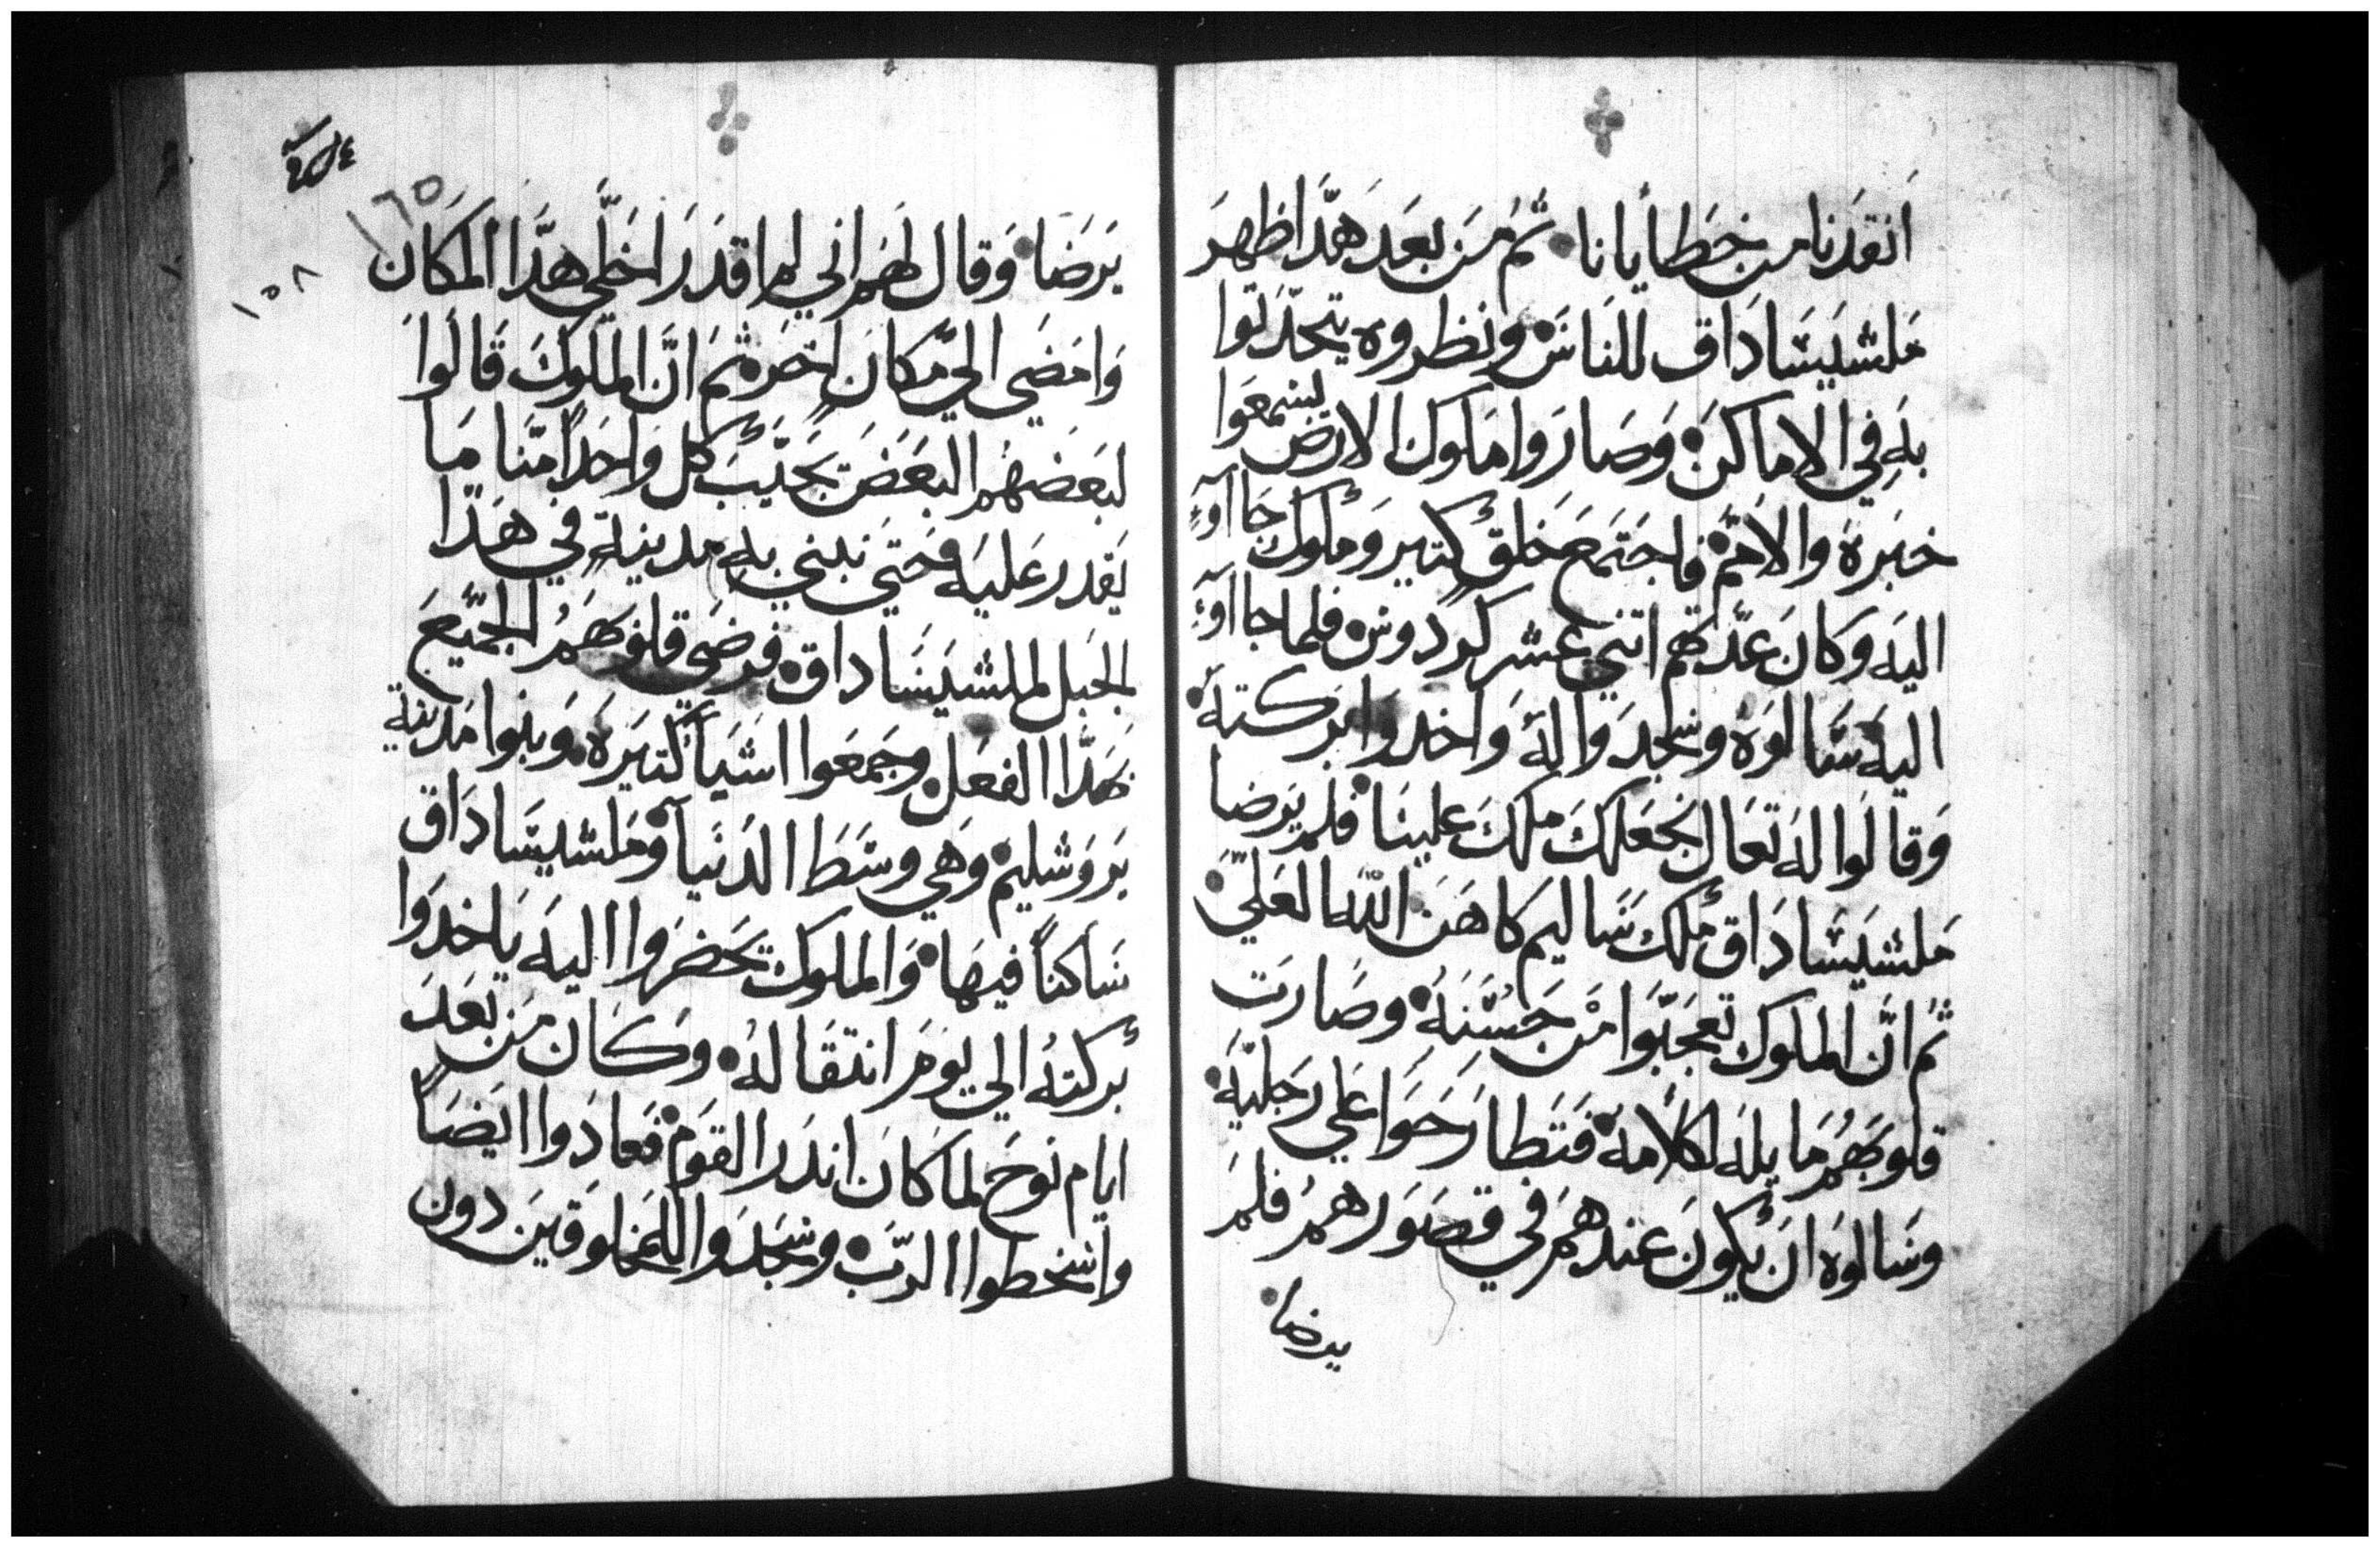 انقدنا من خطأيانا ثم من بعد هدا ظهر
ملشيساداق للناس ونظروه يتحدتوا
به في الاماكن وصاروا ملوك الارض يسمعوا
خبره والامم فاجتمع خلق كتير وملوك جااوء
اليه وكان عدتهم اتني عشر كردوس فلما جااوء
اليه سالوه وسجدوا له واخدوا بركته
وقالوا له تعال نجعلك ملك علينا فلم يرضا
ملشيساداق ملك ساليم كاهن الله العلي
ثم ان الملوك تعجبوا من حسنه وصارت
قلوبهم مايله لكلامه فتطارحوا علي رجليه
وسالوه ان يكون عندهم في قصورهم فلم
يرضا
١٦٥
١٥٨
يرضا وقال لهم اني لم اقدر اخلي هدا المكان
وامضي الي مكان اخر ثم ان الملوك قالوا
لبعضهم البعض يجيب كل واحدا منا ما
يقدر عليه حتي نبني به مدينة في هدا
الجبل لملشيساداق فرضي قلوبهم الجميع
بهدا الفعل وجمعوا اشيا كتيره وبنوا مدينة
يروشليم وهي وسط الدنيا وملشيساداق
ساكنا فيها والملوك تحضروا اليه ياخدوا
بركته الي يوم انتقاله وكان من بعد
ايام نوح لما كان اندر القوم فعادوا ايضا
واسخطوا الرب وسجدوا للمخلوقين دون